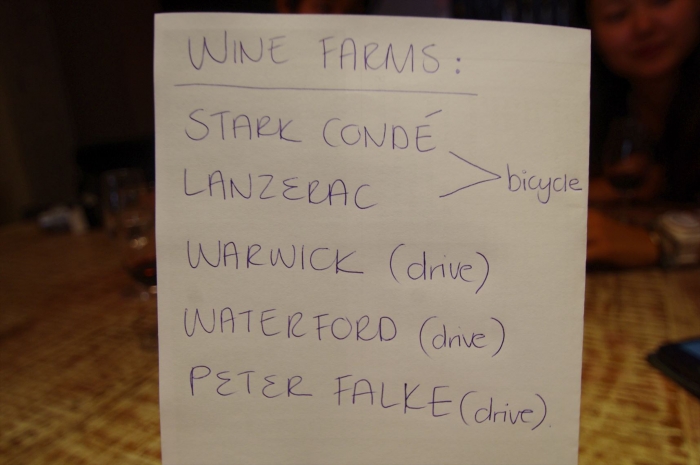 WINE FARMS:
STARK CONDÉ
LANZERAC
bicycle
WARWICK (drive)
WATERFORD (drive)
PETER FALKE (drive)